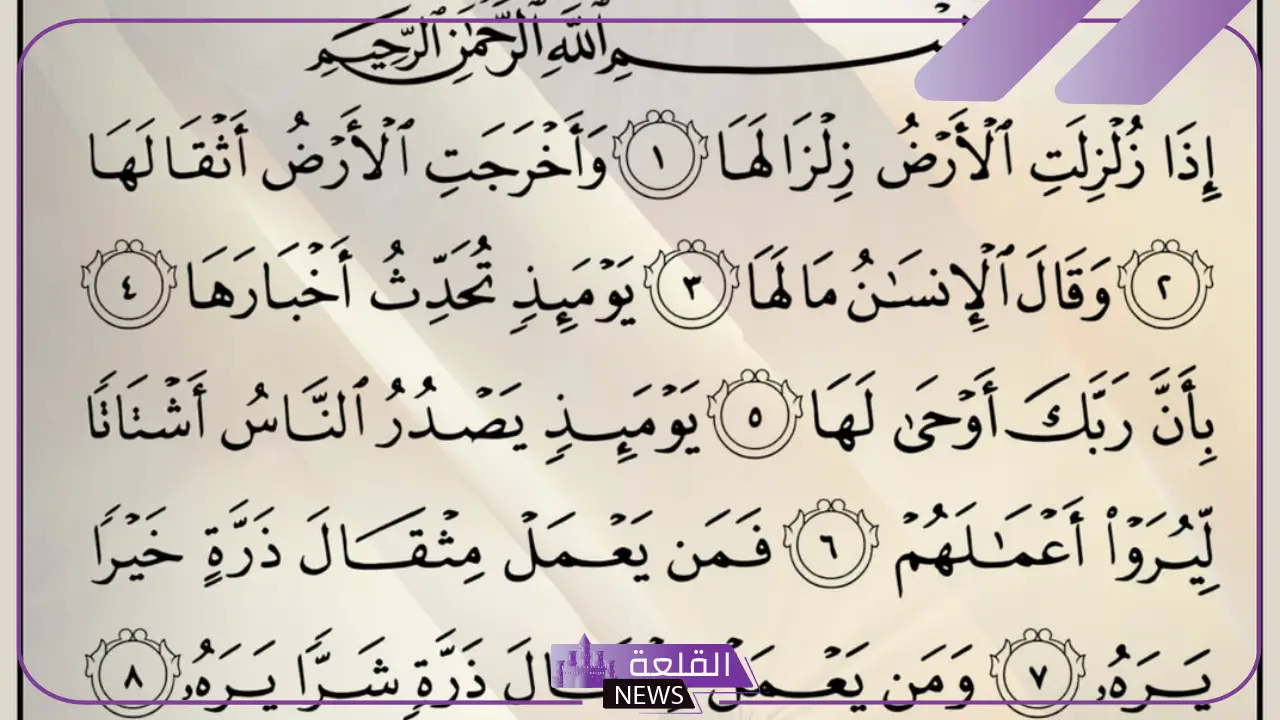 ٱللَّهِ ٱلرَّحْمَٰنِ ٱلرَّحِيمِ
إِذَا زُلْزِلَتِ ٱلْأَرْضُ زِلْزَالَهَا ١ وَأَخْرَجَتِ ٱلْأَرْضُ أَثْقَالَهَا
٢ وَقَالَ ٱلْإِنسَٰنُ مَا لَهَا ٣ يَوْمَئِذٍ تُحَدِّثُ أَخْبَارَهَا ٤
بِأَنَّ رَبَّكَ أَوْحَىٰ لَهَا ٥ يَوْمَئِذٍ يَصْدُرُ ٱلنَّاسُ أَشْتَاتًا
لِّيُرَوْا۟ أَعْمَٰلَهُمْ ٦ فَمَن يَعْمَلْ مِثْقَالَ ذَرَّةٍ خَيْرًا
يَرَهُۥ ٧ وَمَن يَعْمَلْ ذَرَّةٍ شَرًّا يَرَهُۥ ٨
القلعة
NEWS